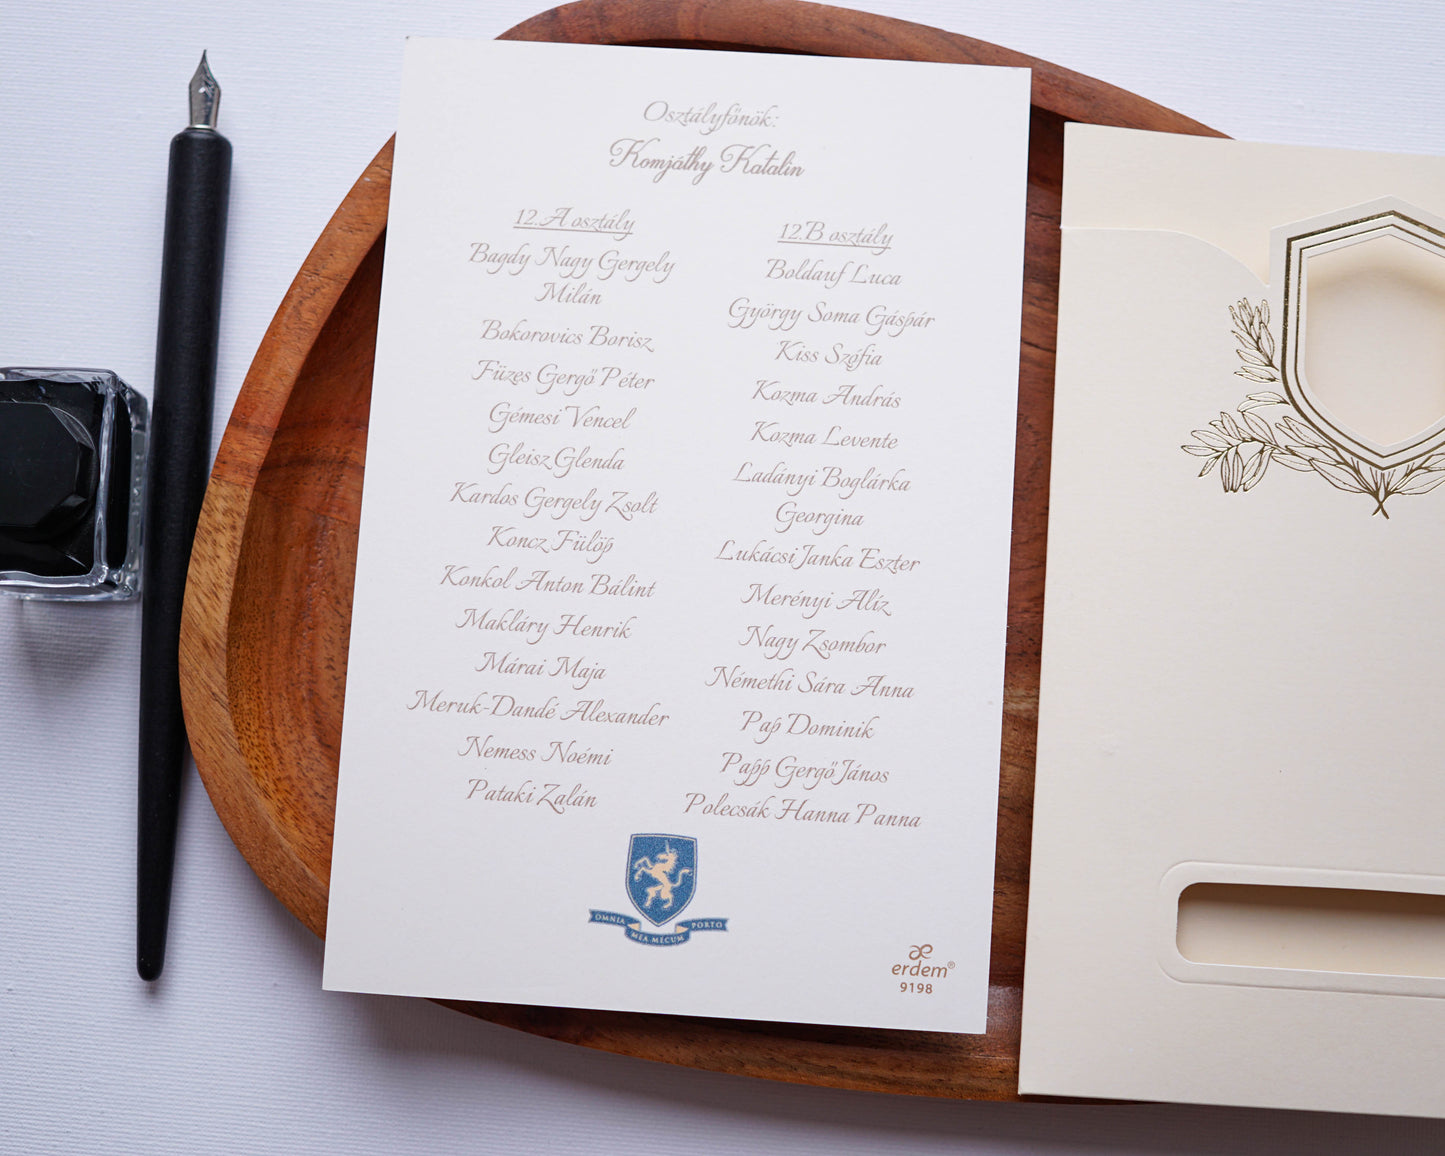 Osztályfőnök:
Komjáthy Katalin
12.A osztály
Bagdy Nagy Gergely
Milán
Bokorovics Borisz
Füzes Gergő Péter
Gémesi Vencel
Gleisz Glenda
Kardos Gergely Zsolt
Koncz Fülöp
Konkol Anton Bálint
Makláry Henrik
Márai Maja
Meruk-Dandé Alexander
Nemess Noémi
Pataki Zalán
12.B osztály
Boldauf Luca
György Soma Gáspár
Kiss Szófia
Kozma András
Kozma Levente
Ladányi Boglárka
Georgina
Lukácsi Janka Eszter
Merényi Alíz
Nagy Zsombor
Némethi Sára Anna
Pap Dominik
Papp Gergő János
Polecsák Hanna Panna
OMNIA MEA MECUM PORTO
erdem®
9198